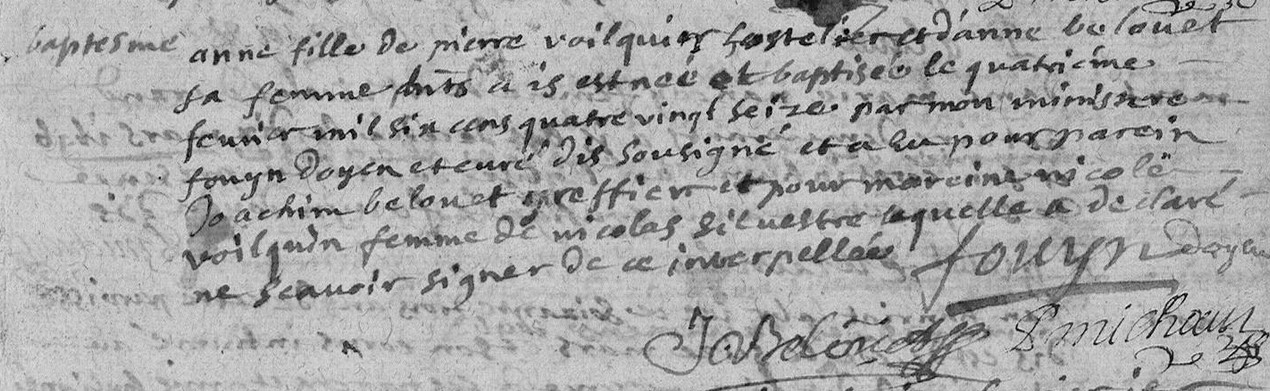 baptesme anne fille de pierre voilquin hostelier et d'anne belouet
sa femme hnts a is est née et baptisée le quatricine
feuvrier mil six cens quatre vingt seize par mon ministere
fouyn Doyen et curé dis sousigné et a eu pour parein
Joachim belouet greffier et pour mareine nicole
voilquin femme de nicolas silvestre laquelle a declaré
ne scavoir signer de ce interpellée fouyn doyen
Jo Belouet P michaux